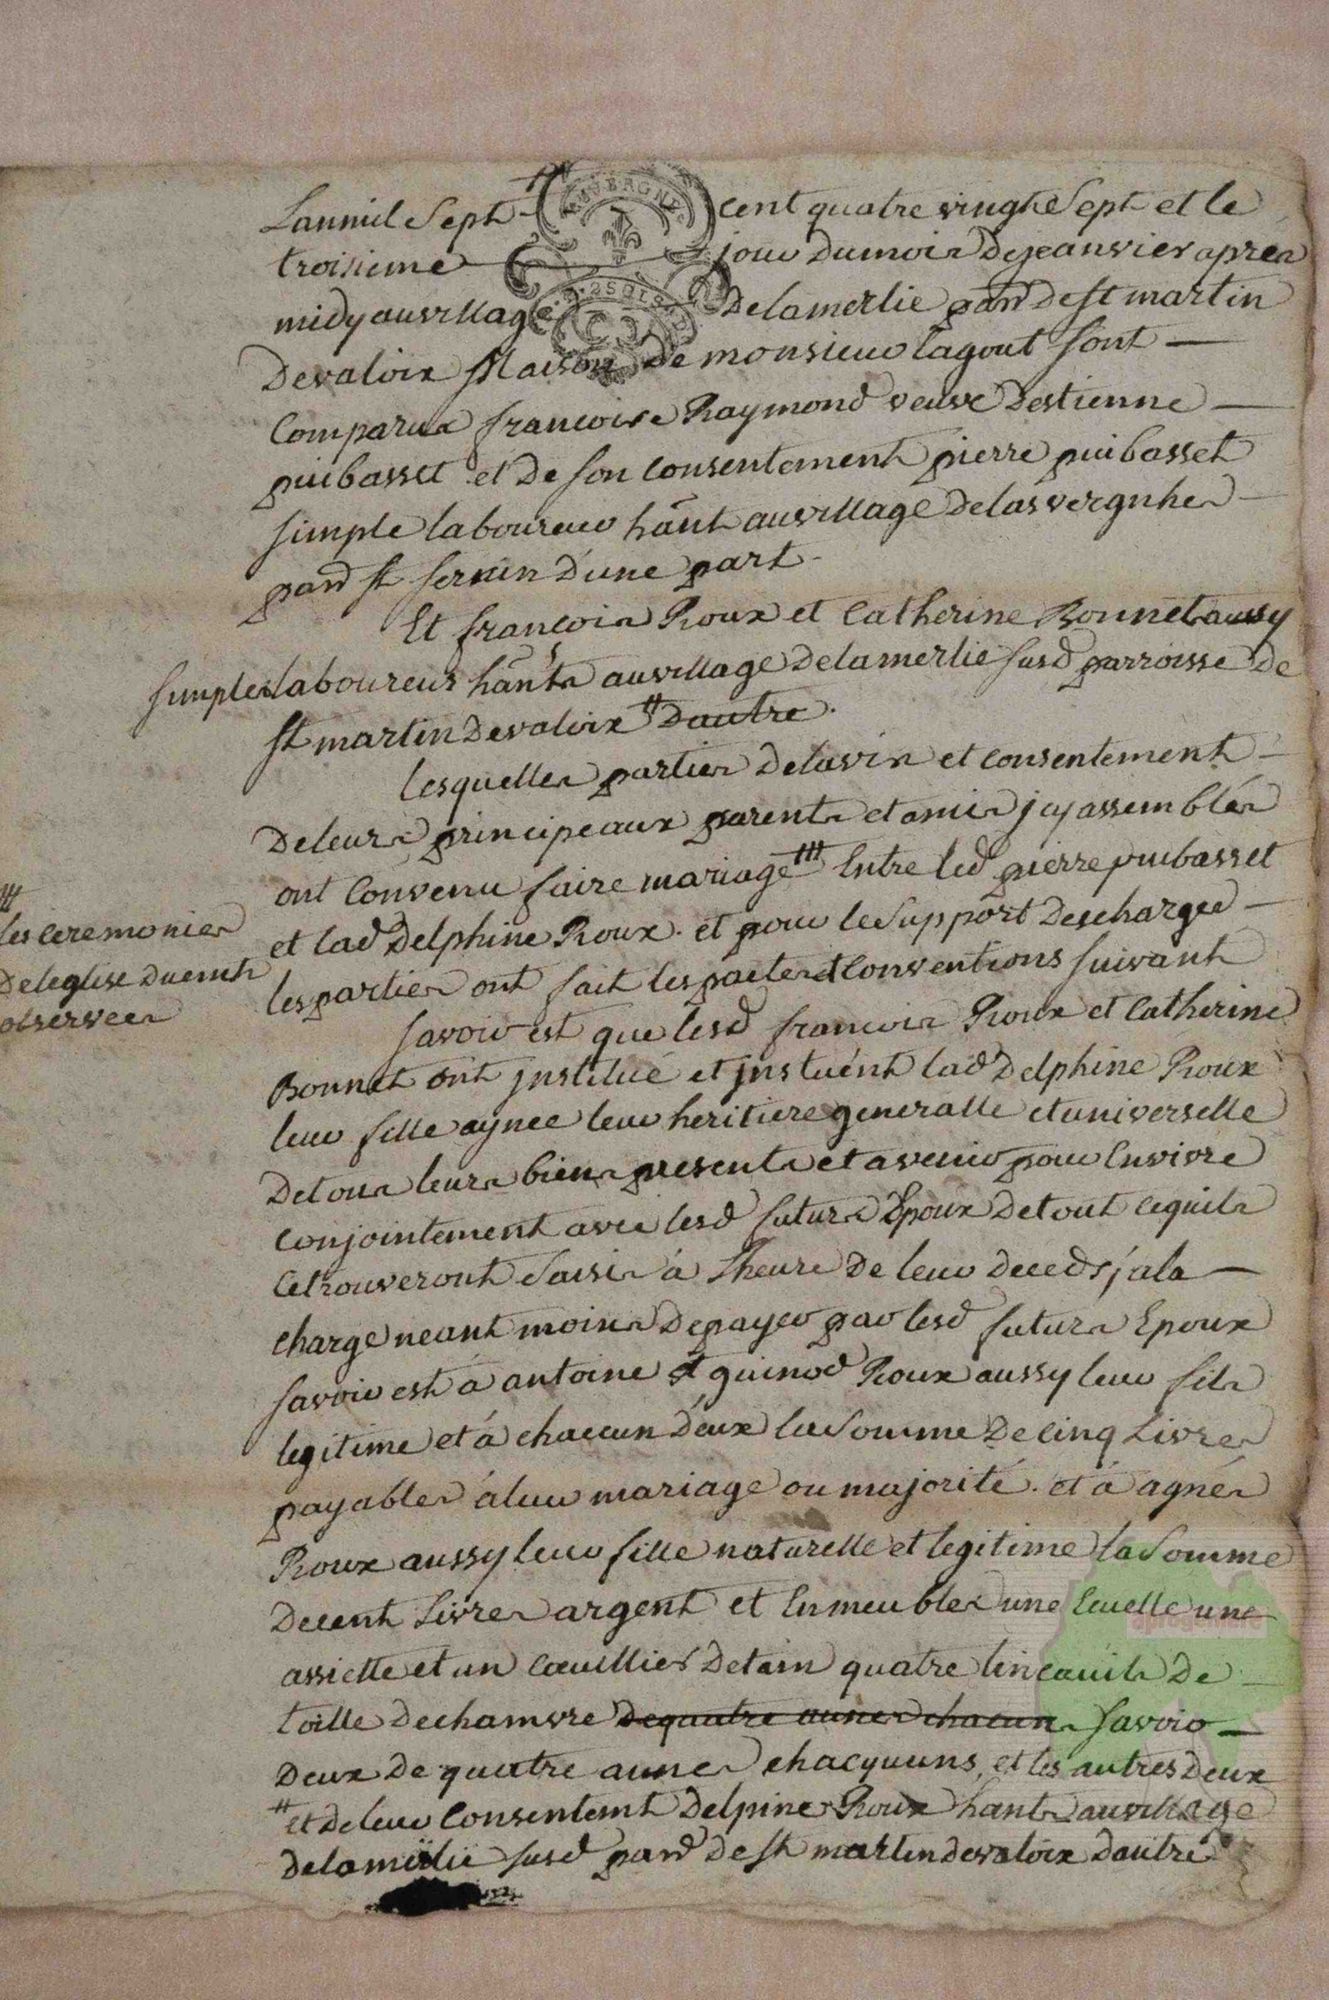 AUVERGNE
2 SOLS
L'anmil Sept cent quatre vingts Sept et le
troisieme jour du mois de jeanvier après
midy au village de lamerlie parr de st martin
de valoix Maison de monsieur lagout sont
Comparus françoise Raymond veuve destienne
puibasset et de son consentement pierre puibasset
simple laboureur hânt au village de las vergnhes
parr st sernin d'une part
Et françois Roux et Catherine Bonnet aussy
simples laboureurs hânts au village de lamerlie susd parroisse de
st martin de valoix # dautre.
lesquelles parties de lavis et consentement
de leurs principeaux parents et amis jcy assemblés
ont convenu faire mariage ### Entre led pierre puibasset
###
les ceremonies
de leglise duemt
observees
et lad Delphine Roux. et pour le support des charges
les parties ont fait les pactes et Conventions suivant
savoir est que lesd francois Roux et Catherine
Bonnet ont jnstitué et jnstuént lad Delphine Roux
leur fille aynee leur heritiere generalle et universelle
de tous leurs biens presents et avenir pour En vivre
conjointement avec lesd futurs Epoux de tout cequils
ce trouveront saisis á l'heure de leur deceds, á la
charge neant moins de payer par lesd futurs Epoux
savoir est á antoine et guinod Roux aussy leur fils
legitime et á chaccun déux la somme de cinq Livres
payables á leur mariage ou majorité. et á agnés
Roux aussy leur fille naturelle et legitime la somme
de cent Livres argent et En meubles une Ecuelle une
assiette et un Coeuillier detain quatre linceuils de
toille de chamvre de quatre aunes chacun savoir
deux de quatre aunes chacquuns, et les autres deux
# et de leur Consentemt Delpine Roux hante au village
de lamerlie susd parr de st martin de valoix dautre